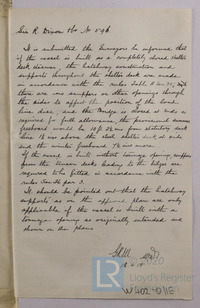 Sir R. Dixon & Co. No 596
It is submitted the Surveyor be informed that
if the vessel is built as a completely closed shelter
deck steamer, the hatchway construction and
supports throughout the shelter deck are made
in accordance with the rules
there are no scuppers or other openings through
the sides to affect the position of the load
line disc, and the Bridge is closed at ends as
required for full allowance, the minimum summer
freeboard would be
above the shelter at side
and the winter freeboard more.
If the vessel is built without tonnage opening scuppers
from the tween decks leading to the bilges are
required to be fitted in accordance with the
rules Par 3.
It should be pointed out that the hatchway
supports as on the approved plan are only
applicable if the vessel is built with a
tonnage opening as originally intended and
shown on the plans
Lloyd's Register
Foundation
W402-0118